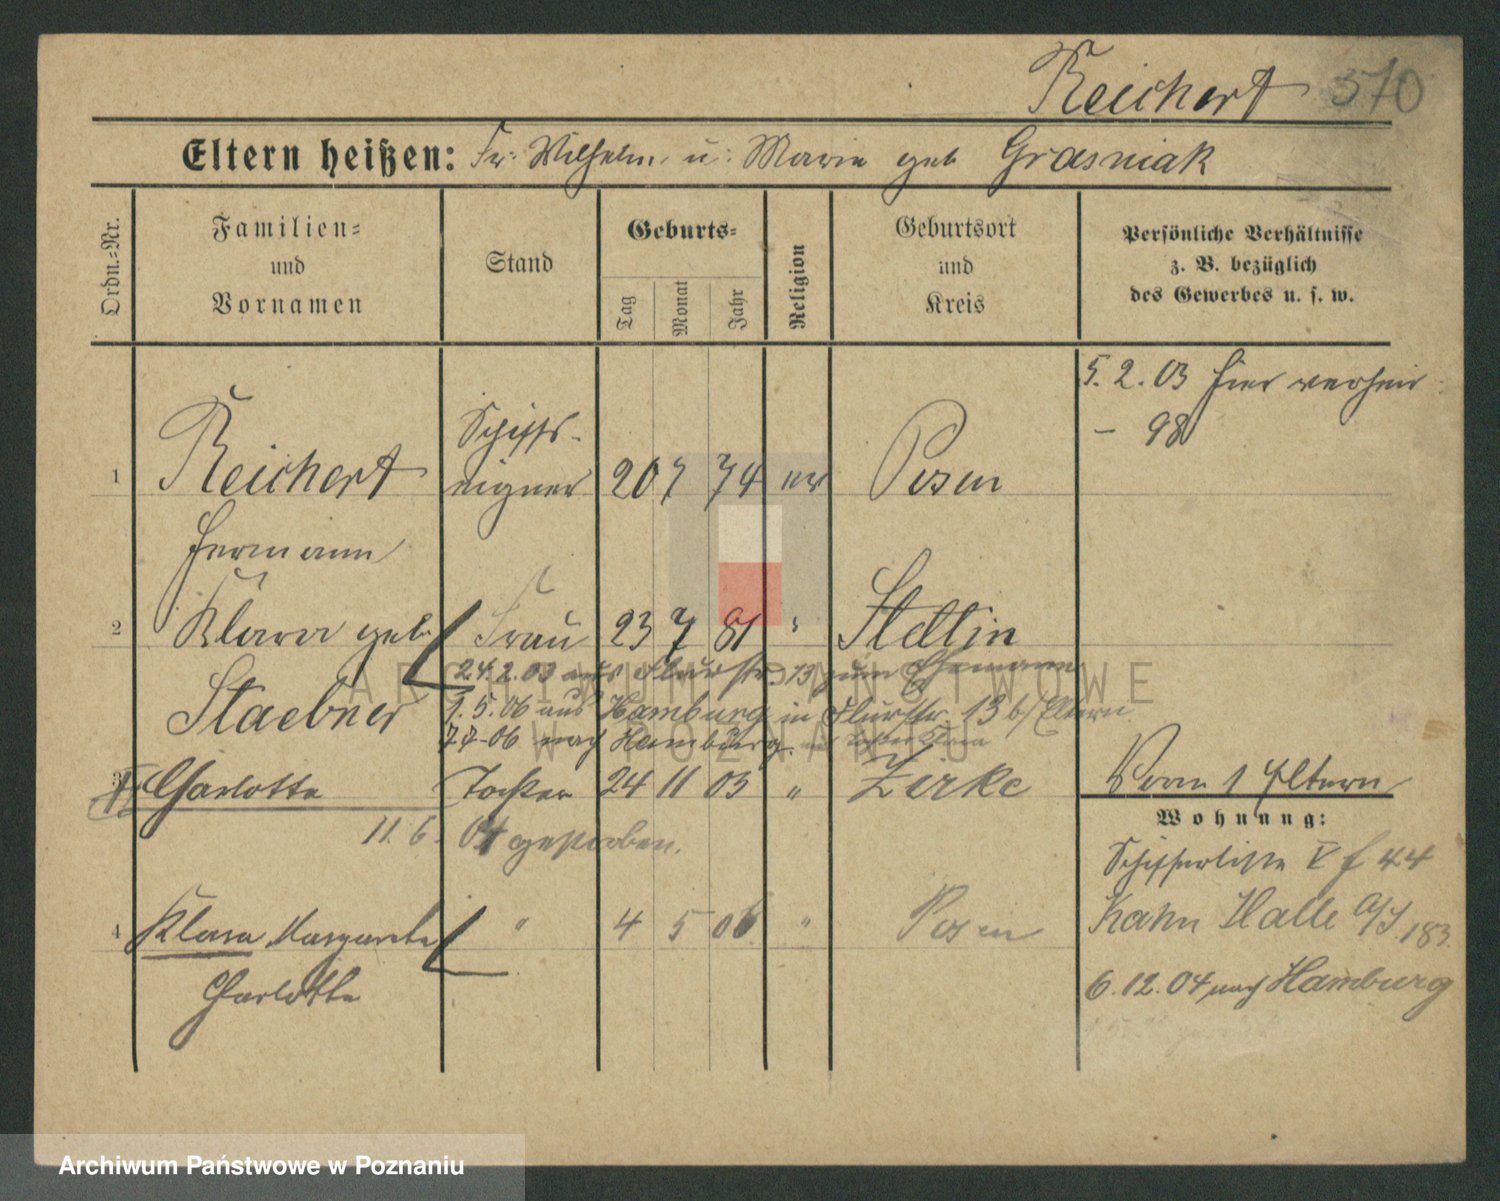 Reichert 570
Eltern heißen: Fr: Wilhelm u: Marie geb Grasniak
Ordn.=Nr.
Familien=
und
Vornamen
Stand
Geburts=
Tag
Monat
Jahr
Religion
Geburtsort
und
Kreis
Persönliche Verhältnisse
z. B. bezüglich
des Gewerbes u. s. w.
5. 2. 03 hier verheir
- 98
Schiffs-
1 Reichert eigner 20 7 74 ev Posen
Hermann
2 Klara geb. Frau 23 7 81 " Stettin
24.2.03 aus Flurstr. 13 zum Ehemann
Staebner 1.5.06 aus Hamburg in Flurstr. 13 b/ Eltern
7.7.06 nach Hamburg
3 Charlotte Tochter 24 11 03 " Zirke
Vorm 1 Eltern
Wohnung:
11.6. 04 gestorben.
Schifferliste V f 44
4 Klara Margarete " 4 5 06 " Posen
Kahn Halle a/S 183.
Charlotte
6.12.04 nach Hamburg
ARCHIWUM PAŃSTWOWE
W POZNANIU
Archiwum Państwowe w Poznaniu